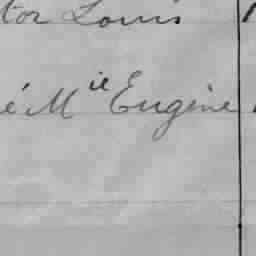 tor Louis
é Mie Eugène